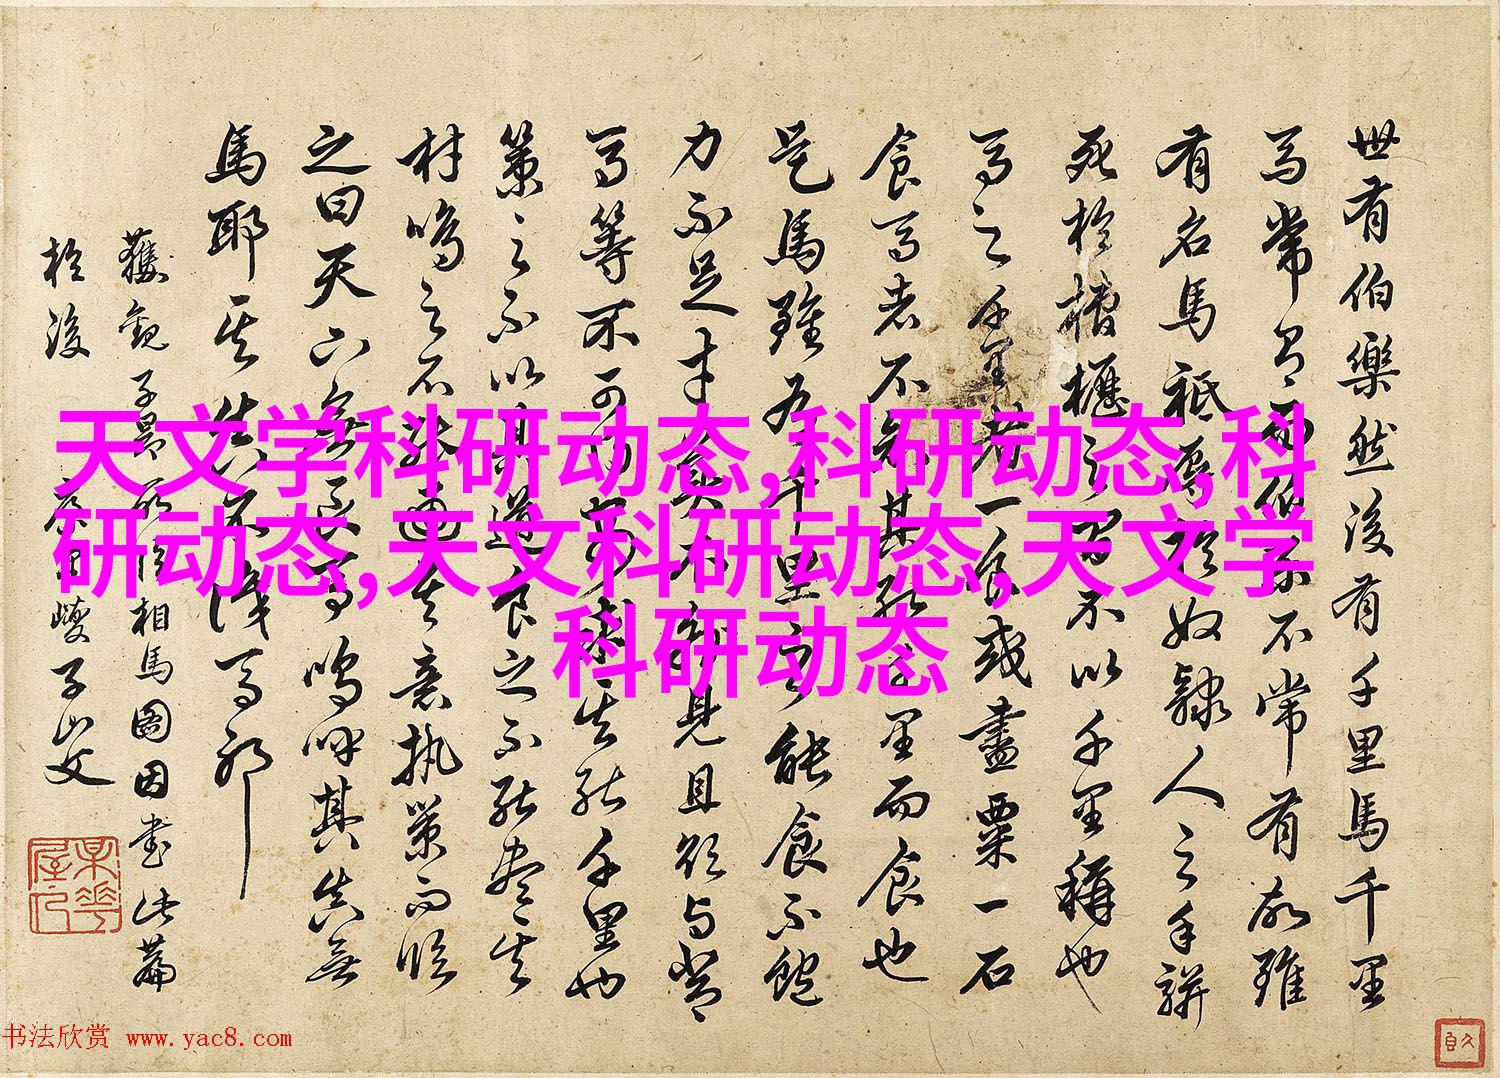 世有伯樂然後有千里馬千里
馬常有而伯樂不常有故雖
有名馬祗辱於奴隸人之手駢
死於槽櫪之間不以千里稱也
馬之千里者一食或盡粟一石
食馬者不知其能千里而食也
是馬雖有千里之能食不飽
力不足才美不外見且欲與常
馬等不可得安求其能千里也
策之不以其道食之不能盡其
材鳴之不能通其意執策而臨
之曰天下無良馬嗚呼其真無
馬耶其真不識馬耶
獲觀子昂所 相馬圖因書此篇
於後 康里巎子山父
天文学科研动态,科研动态,科
研动态,天文科研动态,天文学
科研动态
书法欣赏 www.yac8.com